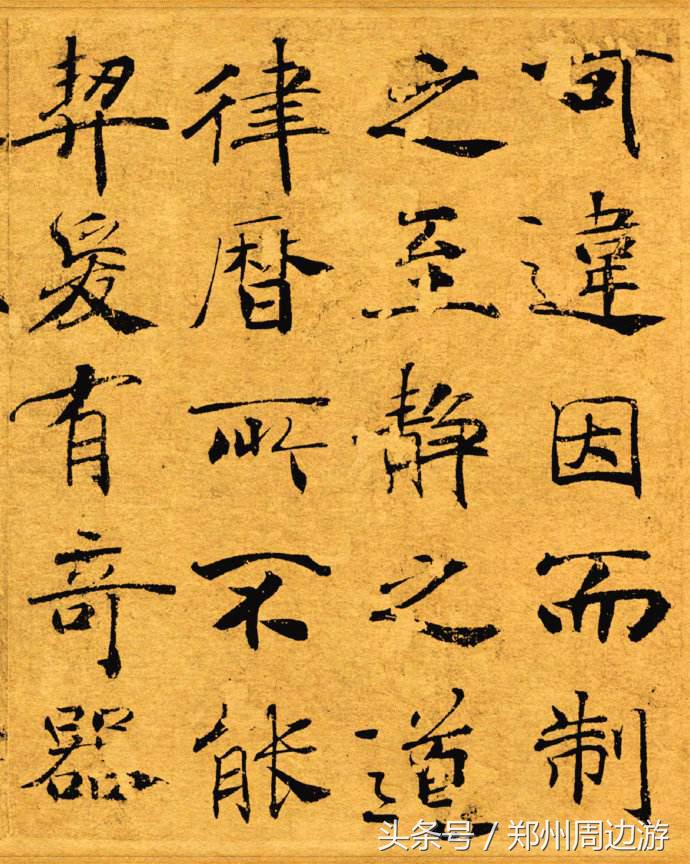 可違因而制
之至靜之道
律曆所不能
契爰有奇器
头条号 / 郑州周边游